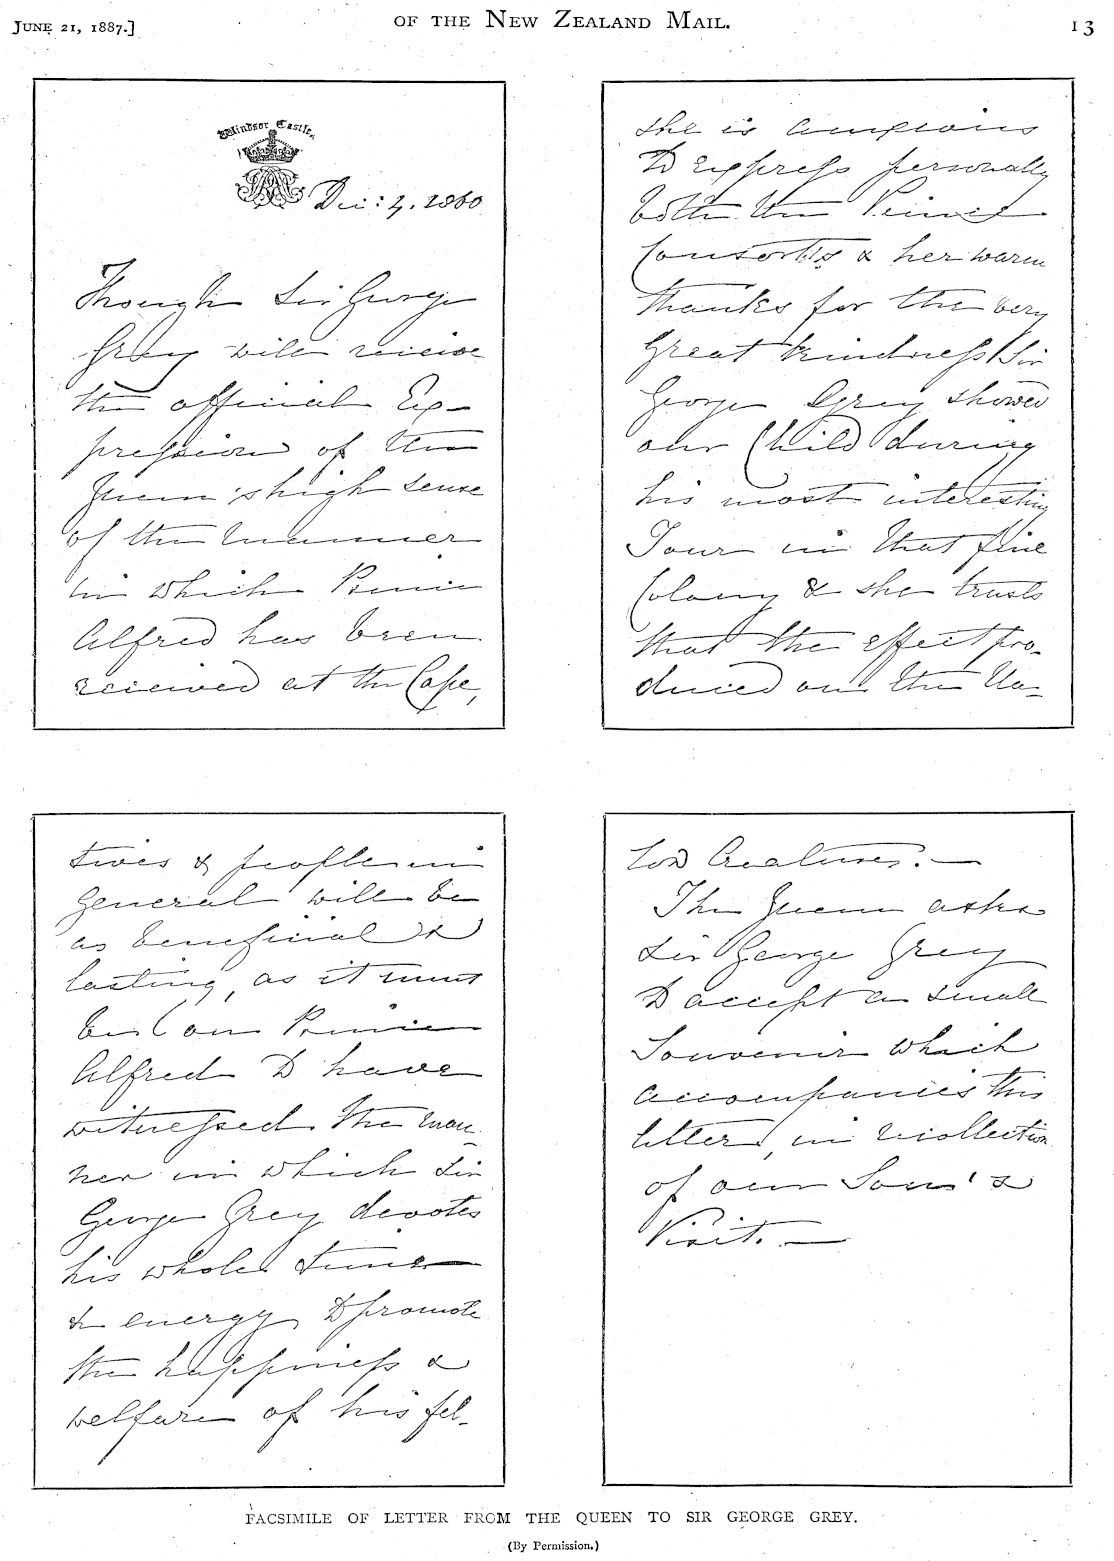 JUNE 21, 1887.]
OF THE NEW ZEALAND MAIL.
13
Windsor Castle.
Dec: 4. 1860
Though Sir George
Grey will receive
the official Ex-
pression of the
Queen's high sense
of the manner
in which Prince
Alfred has been
received at the Cape,
she is anxious
to express personally
both the Prince
Consort's & her warm
thanks for the very
great kindness Sir
George Grey showed
our Child during
his most interesting
Tour in that fine
Colony & she trusts
that the effect pro-
duced on the Na-
tives & people in
general will be
as beneficial &
lasting, as it must
be for Prince
Alfred to have
witnessed the man-
ner in which Sir
George Grey devotes
his whole time
& energy to promote
the happiness &
welfare of his fel-
low Creatures.—
The Queen asks
Sir George Grey
to accept a small
Souvenir which
accompanies this
letter, in recollection
of our Son's
Visit.—
FACSIMILE OF LETTER FROM THE QUEEN TO SIR GEORGE GREY.
(By Permission.)